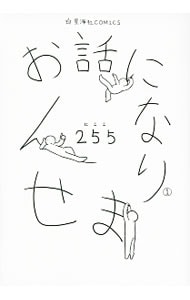 星海社COMICS
お話になりません
①
にここ
255